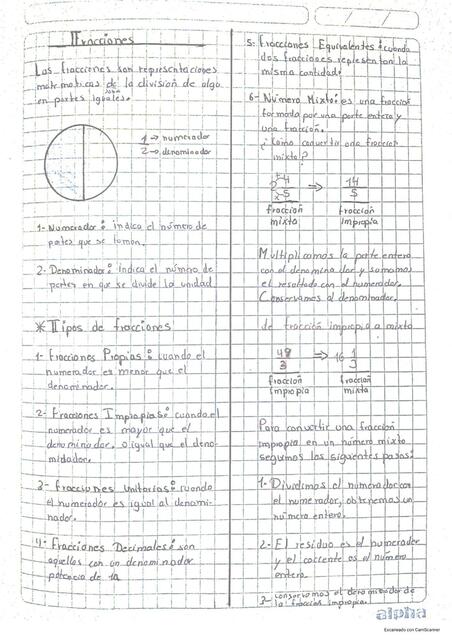 Fracciones
Las fracciones son representaciones
matemáticas de la división de algo
en partes iguales.
1 → numerador
2 → denominador
1- Numerador: indica el número de
partes que se toman.
2- Denominador: Indica el número de
partes en que se divide la unidad.
* Tipos de fracciones
1- Fracciones Propias: cuando el
numerador es menor que el
denominador.
2- Fracciones Impropias: cuando el
numerador es mayor que el
denominador o igual que el deno-
midador.
3- Fracciones Unitarias: cuando
el numerador es igual al denomi-
nador.
4- Fracciones Decimales: son
aquellas con un denominador
potencia de 10
5- Fracciones Equivalentes: cuando
dos fracciones representan la
misma cantidad.
6- Número Mixto: es una fracción
formada por una parte entera y
una fracción.
¿Como convertir una fracción
mixta?
2 + 4 ⇒ 14
x 5 5
fracción fracción
mixta impropia
Multiplicamos la parte entera
con el denominador y sumamos
el resultado con el numerador.
Conservamos al denominador.
de fracción impropia a mixta
⇒ 16 1
3 3
fracción fracción
Impropia mixta
Para convertir una fracción
impropia en un número mixto
seguimos los siguientes pasos:
1- Dividimos el numerador con
el numerador, obtenemos un
número entero.
2- El residuo es el numerador
y el cociente es el número
entero.
3- conservamos el denominador de
la fracción impropia.
alpha
Escaneado con CamScanner